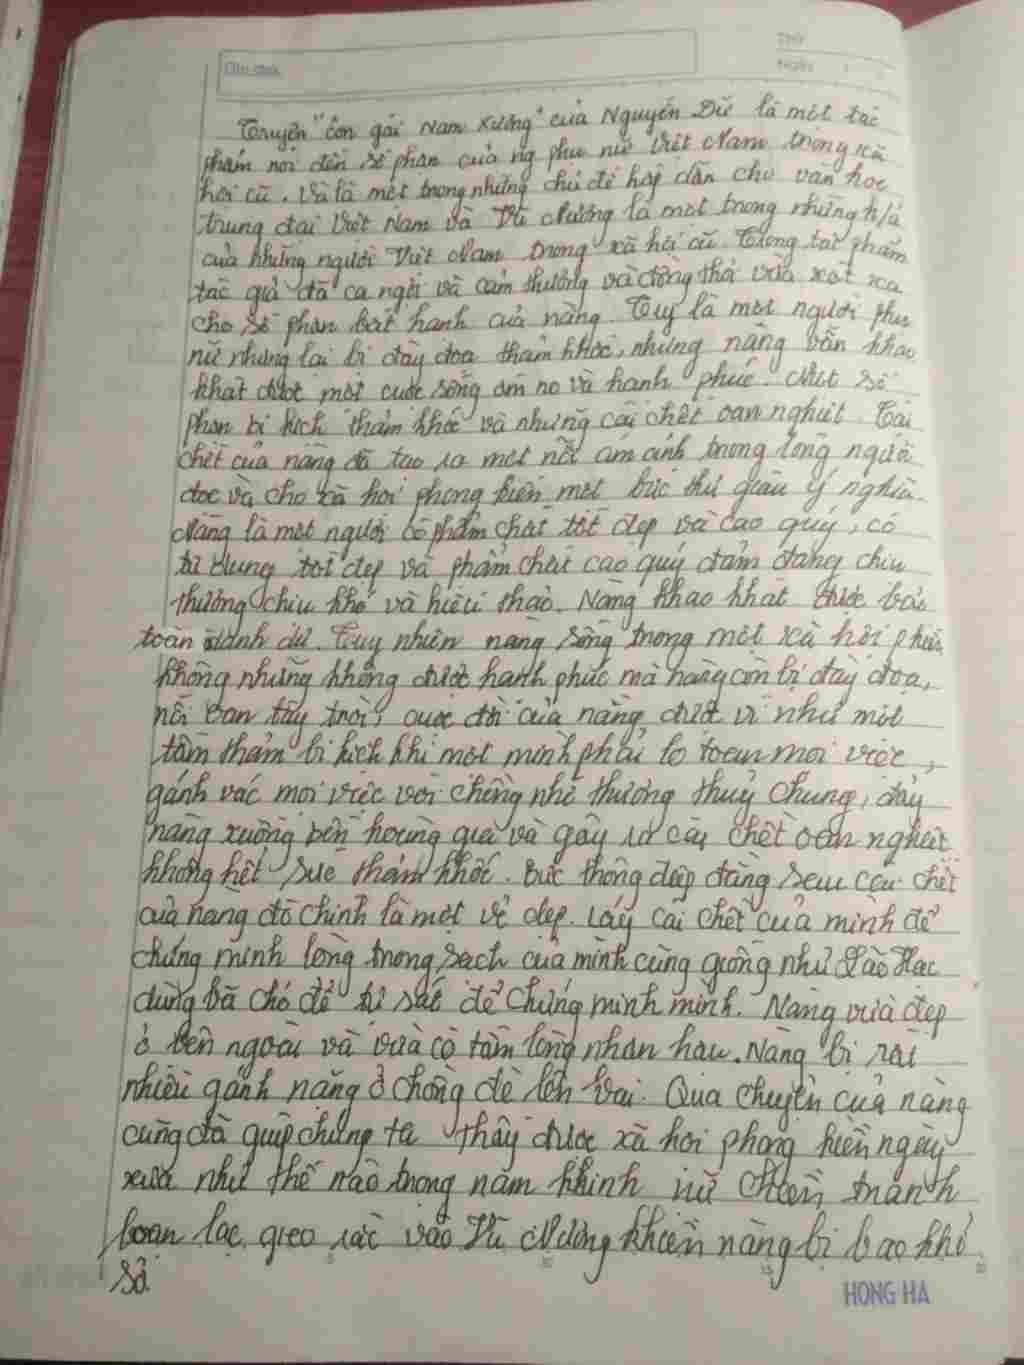 Chủ đề:
Thứ
Ngày
Truyện "con gái Nam Xương" của Nguyễn Dữ là một tác
phẩm nói đến số phận của ng phụ nữ Việt Nam trong xã
hội cũ. Và là một trong những chủ đề hấp dẫn cho văn học
trung đại Việt Nam và Vũ Nương là một trong những n/v
của những người Việt Nam trong xã hội cũ. Trong tác phẩm
tác giả đã ca ngợi và cảm thương và đồng thời vừa xót xa
cho số phận bất hạnh của nàng. Tuy là một người phụ
nữ nhưng lại bị đày đọa thảm khốc, nhưng nàng vẫn khao
khát được một cuộc sống ấm no và hạnh phúc. Một số
phận bi kịch thảm khốc và những cái chết oan nghiệt. Cái
chết của nàng đã tạo ra một nỗi ám ảnh trong lòng người
đọc và cho xã hội phong kiến một bức thư giàu ý nghĩa.
Nàng là một người có phẩm chất tốt đẹp và cao quý, có
tư dung tốt đẹp và phẩm chất cao quý đảm đang chịu
thương chịu khó và hiếu thảo. Nàng khao khát được bảo
toàn danh dự. Tuy nhiên nàng sống trong một xã hội phải
không những không được hạnh phúc mà nàng còn bị đày đọa,
nỗi oan tày trời, cuộc đời của nàng được ví như một
tấm thảm bi kịch khi một mình phải lo toan mọi việc,
gánh vác mọi việc với chồng nhỏ thương thuỷ chung, đẩy
nàng xuống bến hoàng giá và gây ra cái chết oan nghiệt
không hết sức thảm khốc. Bức thông điệp đằng sau cái chết
của nàng đó chính là một vẻ đẹp. Lấy cái chết của mình để
chứng minh lòng trong sạch của mình cũng giống như Lão Hạc
dùng bã chó để tự sát để chứng minh mình. Nàng vừa đẹp
ở bên ngoài và vừa có tấm lòng nhân hậu. Nàng bị rất
nhiều gánh nặng ở chồng đè lên vai. Qua chuyện của nàng
cũng đã giúp chúng ta thấy được xã hội phong kiến ngày
xưa như thế nào trọng nam khinh nữ chiến tranh
loạn lạc gieo rắc vào Vũ Nương khiến nàng bị bao khổ
sở.
HONG HA